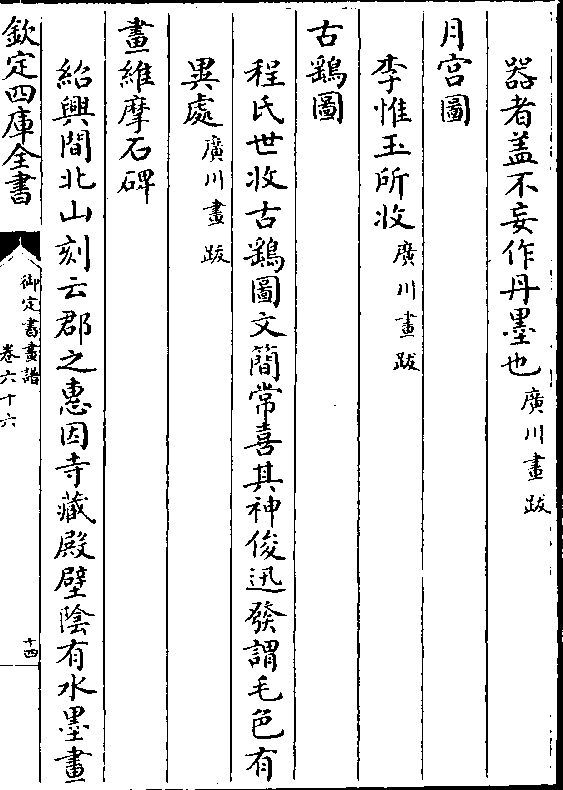 器者盖不妄作丹墨也廣川畫跋
月宮圖
李惟玉所收廣川畫跋
古鷂圖
程氏世收古鷂圖文簡常喜其神俊迅發謂毛色有
異處廣川畫跋
畫維摩石碑
紹興間北山刻云郡之惠因寺藏殿壁隂有水墨畫
欽定四庫全書
御定書畫譜
卷六十六
十四